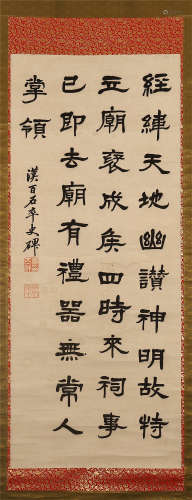 經緯天地幽讚神明故特
立廟褒成矦四時來祠事
已即去廟有禮器無常人
掌領
漢百石卒史碑